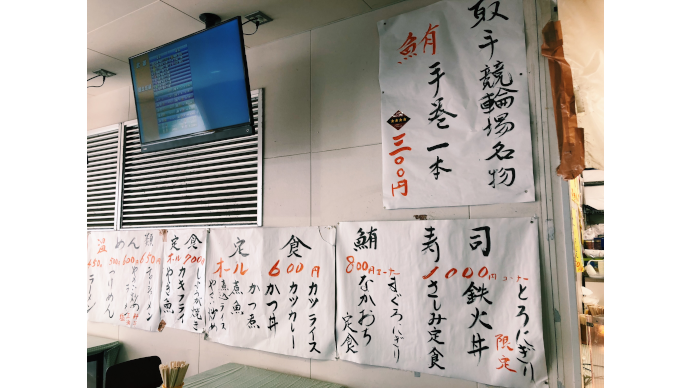 取手競輪場名物
鮪手巻一本
三〇〇円
鮪寿司
1000円コーナー
とろにぎり
限定
鉄火丼
さしみ定食
800円コーナー
まぐろにぎり
なかおち定食
定食
オール600円
カツライス
カツカレー
かつ丼
かつ煮
煮魚
定食
オール900円
しょうが焼き
カキフライ
やき魚
温めん類
450円
500円
600円
650円
ラーメン